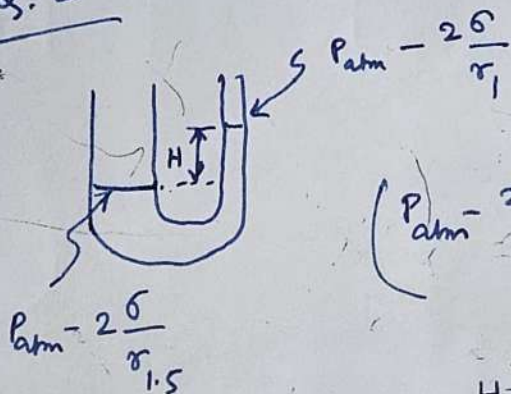 P_atm - 2σ/r_1
H
(P_atm -
P_atm - 2σ/r_1.5
H